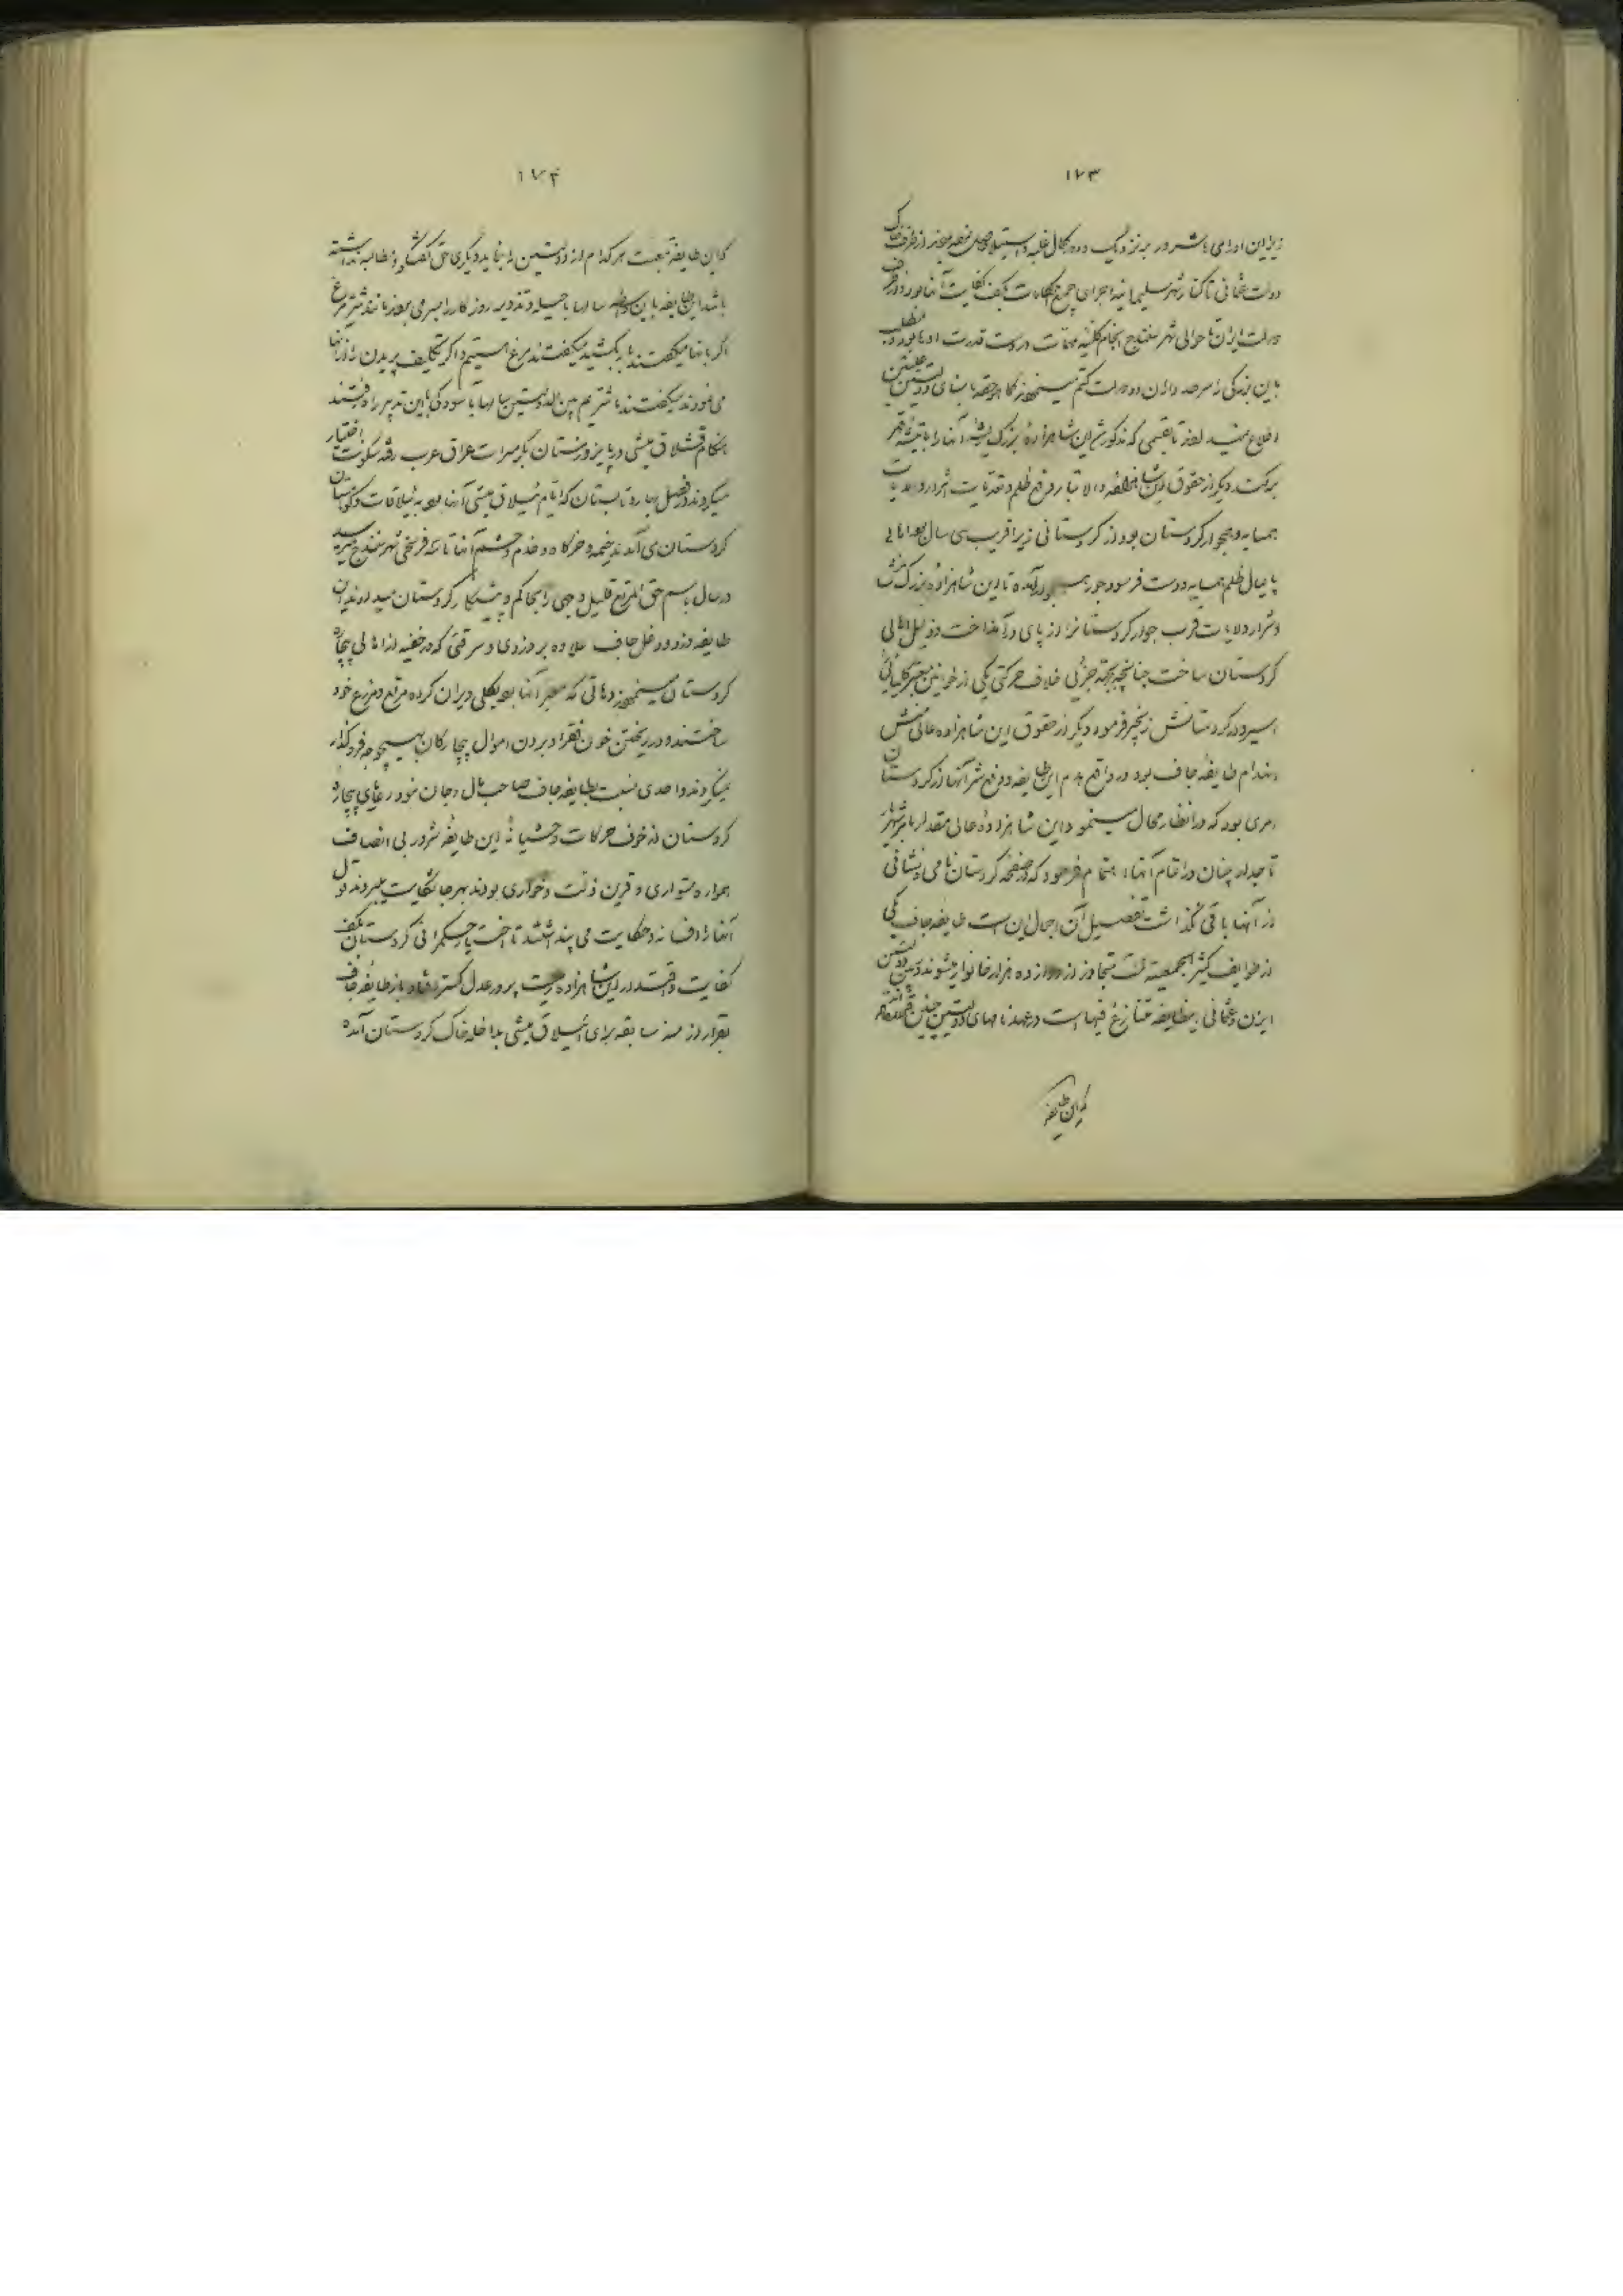 ۱۷۳
زیر این اورامی با شرور بر نزدیک و دور کمال غلبه و استیلا حاصل نموده بودند از طرف خاک
دولت عثمانی تا کنار شهر سلیمانیه اجرای جمیع حکامات بکف کفایت آنها بود و از طرف
دولت ایران تا حوالی شهر سنندج انجام کلیه مهمات در دست قدرت آنها بود و مطلب
باین بزرگی را سرحدداران دولت کتم مینمودند که هر وقت بامنای دولتین علیتین
اطلاع میداد بعد از تفصیلی که مذکور شد این شاهزاده بزرگ ریشه آنها را با تیشه قهر
برکند دیگر از حقوق این شاهزاده والا تبار رفع ظلم و تعدیات اشرار ولایات
همسایه و همجوار کردستان بود از کردستانی زیرا قریب سی سال بود اهالی
پایمال ظلم همسایه و دست فرسود جور همجوار آمده تا این شاهزاده بزرگ منش
اشرار ولایت قرب جوار کردستان را از پای درانداخت و ذلیل اهالی
کردستان ساخت چنانچه بجهة جزئی خلاف حرکتی یکی از خوانین معتبر کلیائی را
اسیر و در کردستانش زنجیر فرمود دیگر از حقوق این شاهزاده عالی منش
انهدام طایفه جاف بود در واقع هدم این طایفه و دفع شر آنها از کردستان
امری بود که در انظار محال مینمود این شاهزاده عالی مقدار بامر شهریار
تاجدار چنان در اتمام آنها اهتمام فرمود که در صفحه کردستان نامی و نشانی
از آنها باقی نگذاشت تفصیل آن اجمال این است طایفه جاف یکی
از طوایف کثیر الجمعیة است متجاوز از دوازده هزار خانوار میشوند و بین دولتین
ایران و عثمانی این طایفه متنازع فیها است در عهدنامهای دولتین چنین قرار داده‌اند
که این طایفه
۱۷۴
که این طایفه تبعیت هر کدام از دولتین را بنماید دیگری حق گفتگو و مطالبه نداشته
باشد این طایفه باین واسطه سالها با حیله و تزویر روزگار را بسر می بردند مانند شتر مرغ
اگر بانها میگفتند بار بکشید میگفتند مرغ هستیم و اگر تکلیف پریدن را از آنها
می نمودند میگفتند ما شتریم بین الدولتین سالها بآسودگی باین تدبیر راه رفتند
هنگام قشلاق میشی در پاییز و زمستان بگرمسیرات عراق عرب رفته سکونت اختیار
میکردند و فصل بهار و تابستان که ایام ییلاق میشی آنها بود به ییلاقات و کوهستان
کردستان می آمدند خیمه و خرگاه و خدم و حشم آنها تا سه فرسخی شهر سنندج میرسید
هر سال باسم حق المرتع قلیل وجهی را بحاکم و پیشکار کردستان میدادند این
طایفه دزد و دغل جاف علاوه بر دزدی و سرقتی که در خفیه از اهالی بیچاره
کردستان مینمودند دهاتی که معبر آنها بود بکلی ویران کرده مرتع و مزرع خود
ساختند و در ریختن خون فقرا و بردن اموال بیچارگان بهیچوجه فروگذار
نمیکردند واحدی نسبت بطایفه جاف صاحب مال و جان نبود رعایای بیچاره
کردستان از خوف حرکات وحشیانه این طایفه شرور بی انصاف
همواره متواری و قرین ذلت و خواری بودند بهر جا شکایت میبردند قول
آنها را افسانه و حکایت می پنداشتند تا اختیار حکمرانی کردستان بکف
کفایت و اقتدار این شاهزاده رعیت پرور عدل گستر افتاد باز طایفه جاف
بقرار ازمنه سابقه برای ییلاق میشی بداخله خاک کردستان آمده